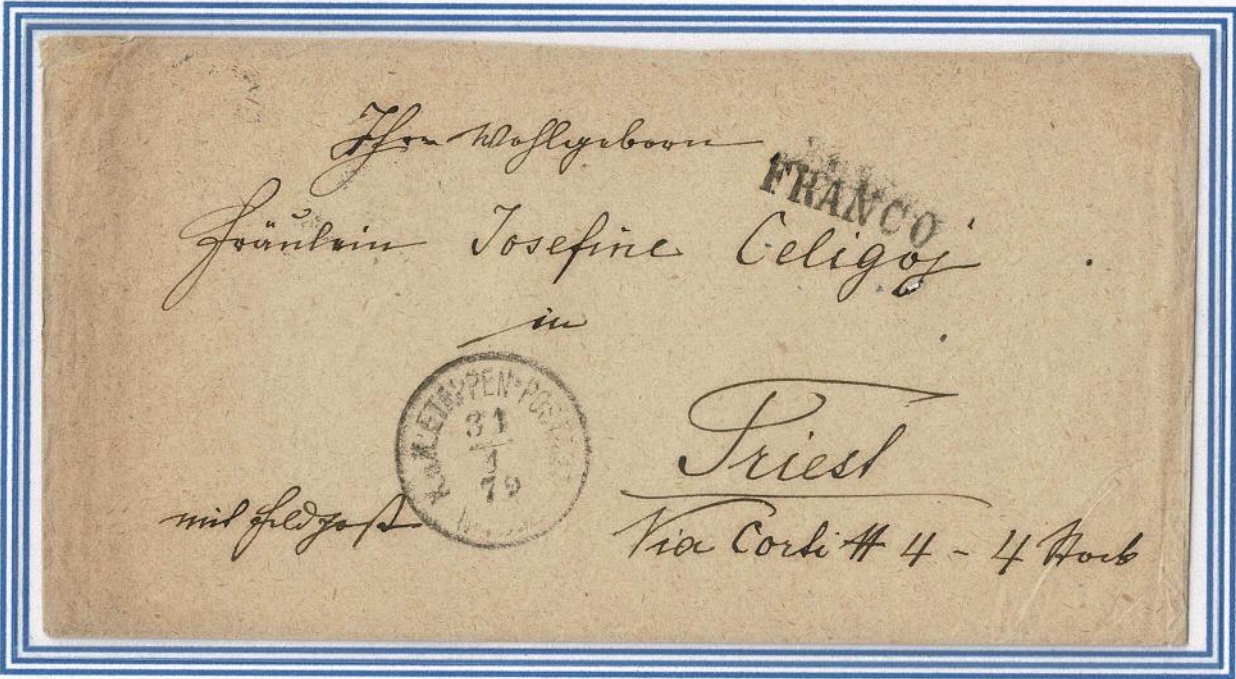 Ihro Wohlgeborn
FRANCO
Fräulein Josefine Celigoj
in
K.u.K. ETAPPEN-POSTAMT
31
1
79
Triest
mit Feldpost
Via Corti # 4 - 4 Stock